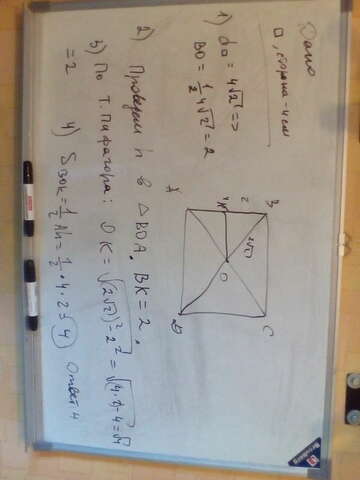 Дано
□, сторона - 4 см
1) d□ = 4√2 =>
BO = 1/2 4√2 = 2
2) Проведем h в △BOA. BK = 2.
3) По т. Пифагора: OK = √(2√2)² - 2² = √(4·2) - 4 = √4
= 2
4) S BOK = 1/2 Ah = 1/2 · 4 · 2 = 4
Ответ 4
A
K
2
B
2√2
O
D
C